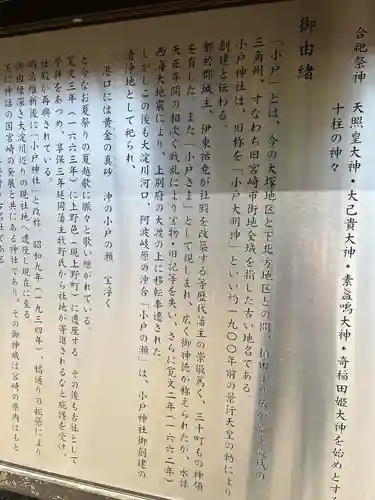 合祀祭神　天照皇大神・大己貴大神・素盞鳴大神・奇稲田姫大神を始めとす
十柱の神々
御由緒
「小戸」とは、今の大塚地区と下北方地区との間、
三角州、すなわち旧宮崎市街地全域を指した古い地名である
小戸神社は、旧称を「小戸大明神」といい約一九〇〇年前の景行天皇の勅により
創建と伝わる
都於郡城主、伊東祐堯が社殿を改築する等歴代藩主の崇敬篤く、三十町もの神領
を有した。また「小戸さま」として親しまれ、広く御神徳が称えられたが、水禄
天正年間の相次ぐ戦乱により宝物・旧記等を失い、さらに寛文二年(一六六二年)
西海大地震により、上別府の大渡の上に移転奉遷された
しかしこの後も大淀川河口、阿波岐原の沖合「小戸の瀬」は、小戸神社御創建の
清浄地として、
港口には黄金の真砂　沖の小戸の瀬　宝浮く
と今なお夏祭りの夏越歌に賑々と歌い継がれている。
寛文三年(一六六三年)に上野邑(現上野町)に遷座する　その後も古社として
崇拝をあつめ、享保三年延岡藩主牧野氏から社地が寄進されるなど庇護を受け、
社殿が再興されている。
明治維新後に「小戸神社」と改称　昭和九年(一九三四年)、橘通りの拡張により
御由緒深き大淀川辺りの現社地へ遷座し現在に至る
実に神話の国宮崎の発展と共にあり神社であり、その御神威は宮崎の県内はもと